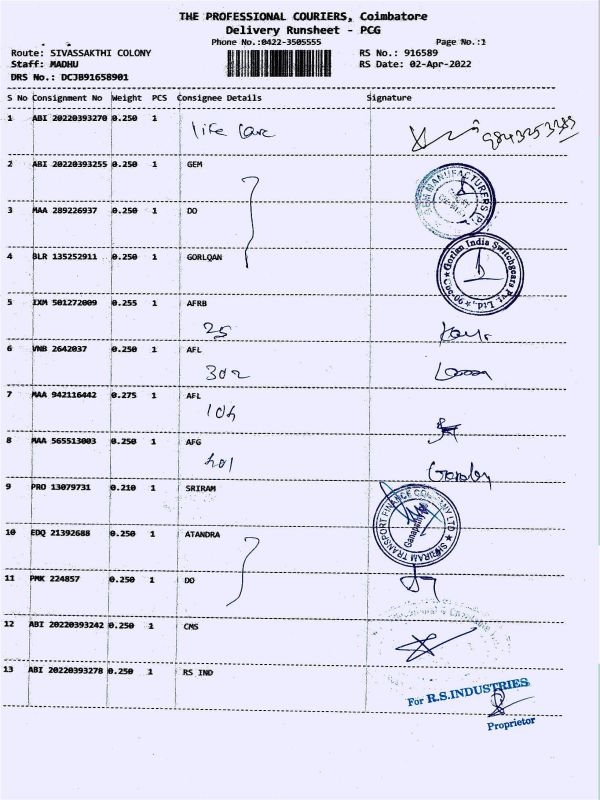 THE PROFESSIONAL COURIERS, Coimbatore
Delivery Runsheet - PCG
Phone No.:0422-3505555 Page No.:1
Route: SIVASSAKTHI COLONY RS No.: 916589
Staff: MADHU RS Date: 02-Apr-2022
DRS No.: DCJB91658901
S No Consignment No Weight PCS Consignee Details Signature
1 ABI 20220393270 0.250 1
life care
2 ABI 20220393255 0.250 1 GEM
MANUFACTURERS (P)
3 MAA 289226937 0.250 1 DO
4 BLR 135252911 0.250 1 GORLQAN
Gorlan India Switchgears Pvt. Ltd.,
5 IXM 501272009 0.255 1 AFRB
25
6 VNB 2642037 0.250 1 AFL
302
7 MAA 942116442 0.275 1 AFL
104
8 MAA 565513003 0.250 1 AFG
201
9 PRO 13079731 0.210 1 SRIRAM
SRIRAM TRANSPORT FINANCE COMPANY LTD
Ganapathy
10 EDQ 21392688 0.250 1 ATANDRA
11 PMK 224857 0.250 1 DO
12 ABI 20220393242 0.250 1 CMS
13 ABI 20220393278 0.250 1 RS IND
For R.S.INDUSTRIES
Proprietor